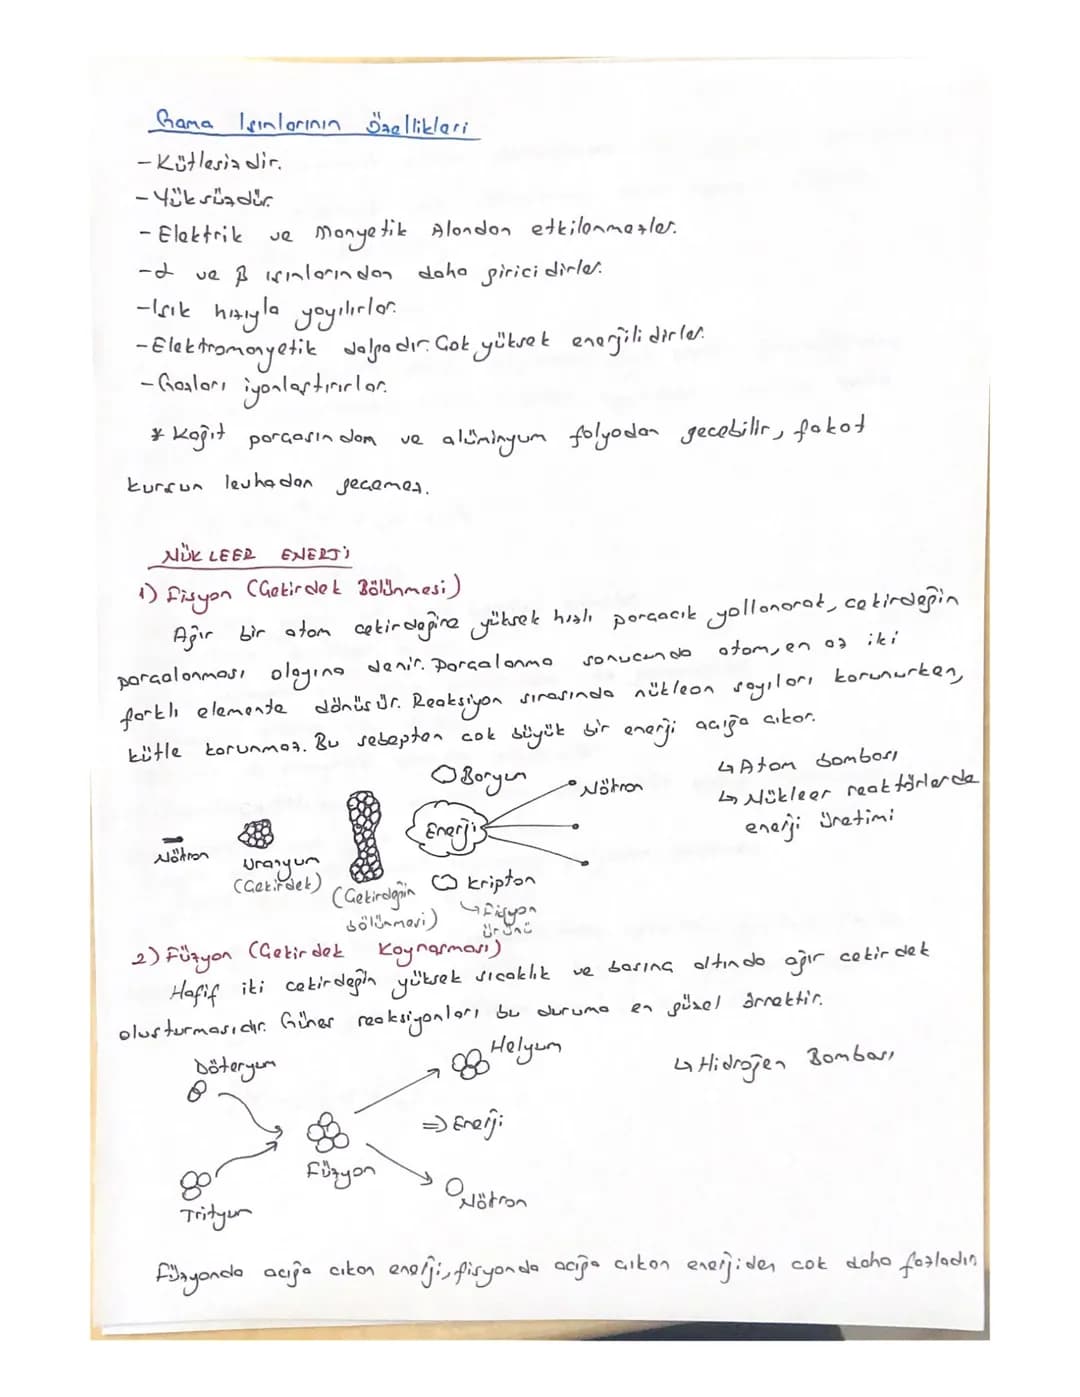 Gama Işınlarının Özellikleri
- Kütlesizdir.
- Yüksüzdür.
- Elektrik ve Manyetik Alandan etkilenmezler.
- α ve β ışınlarından daha giricidirler.
- Işık hızıyla yayılırlar.
- Elektromanyetik dalgadır. Çok yüksek enerjilidirler.
- Gazları iyonlaştırırlar.
* Kağıt parçasından ve alüminyum folyodan geçebilir, fakat
kurşun levhadan geçemez.
NÜKLEER ENERJİ
1) Fisyon (Çekirdek Bölünmesi)
Ağır bir atom çekirdeğine yüksek hızlı parçacık yollanarak, çekirdeğin
parçalanması olayına denir. Parçalanma sonucunda atom, en az iki
farklı elemente dönüşür. Reaksiyon sırasında nükleon sayıları korunurken,
kütle korunmaz. Bu sebepten çok büyük bir enerji açığa çıkar.
↳ Atom bombası
↳ Nükleer reaktörlerde
enerji üretimi
Baryum
Nötron
Enerji
Nötron
Uranyum
(Çekirdek)
(Çekirdeğin
bölünmesi)
Kripton
↳ Fisyon
ürünü
2) Füzyon (Çekirdek Kaynaşması)
Hafif iki çekirdeğin yüksek sıcaklık ve basınç altında ağır çekirdek
oluşturmasıdır. Güneş reaksiyonları bu duruma en güzel örnektir.
Döteryum
Helyum
↳ Hidrojen Bombası
⇒ Enerji
Füzyon
Nötron
Trityum
Füzyonda açığa çıkan enerji, fisyonda açığa çıkan enerjiden çok daha fazladır